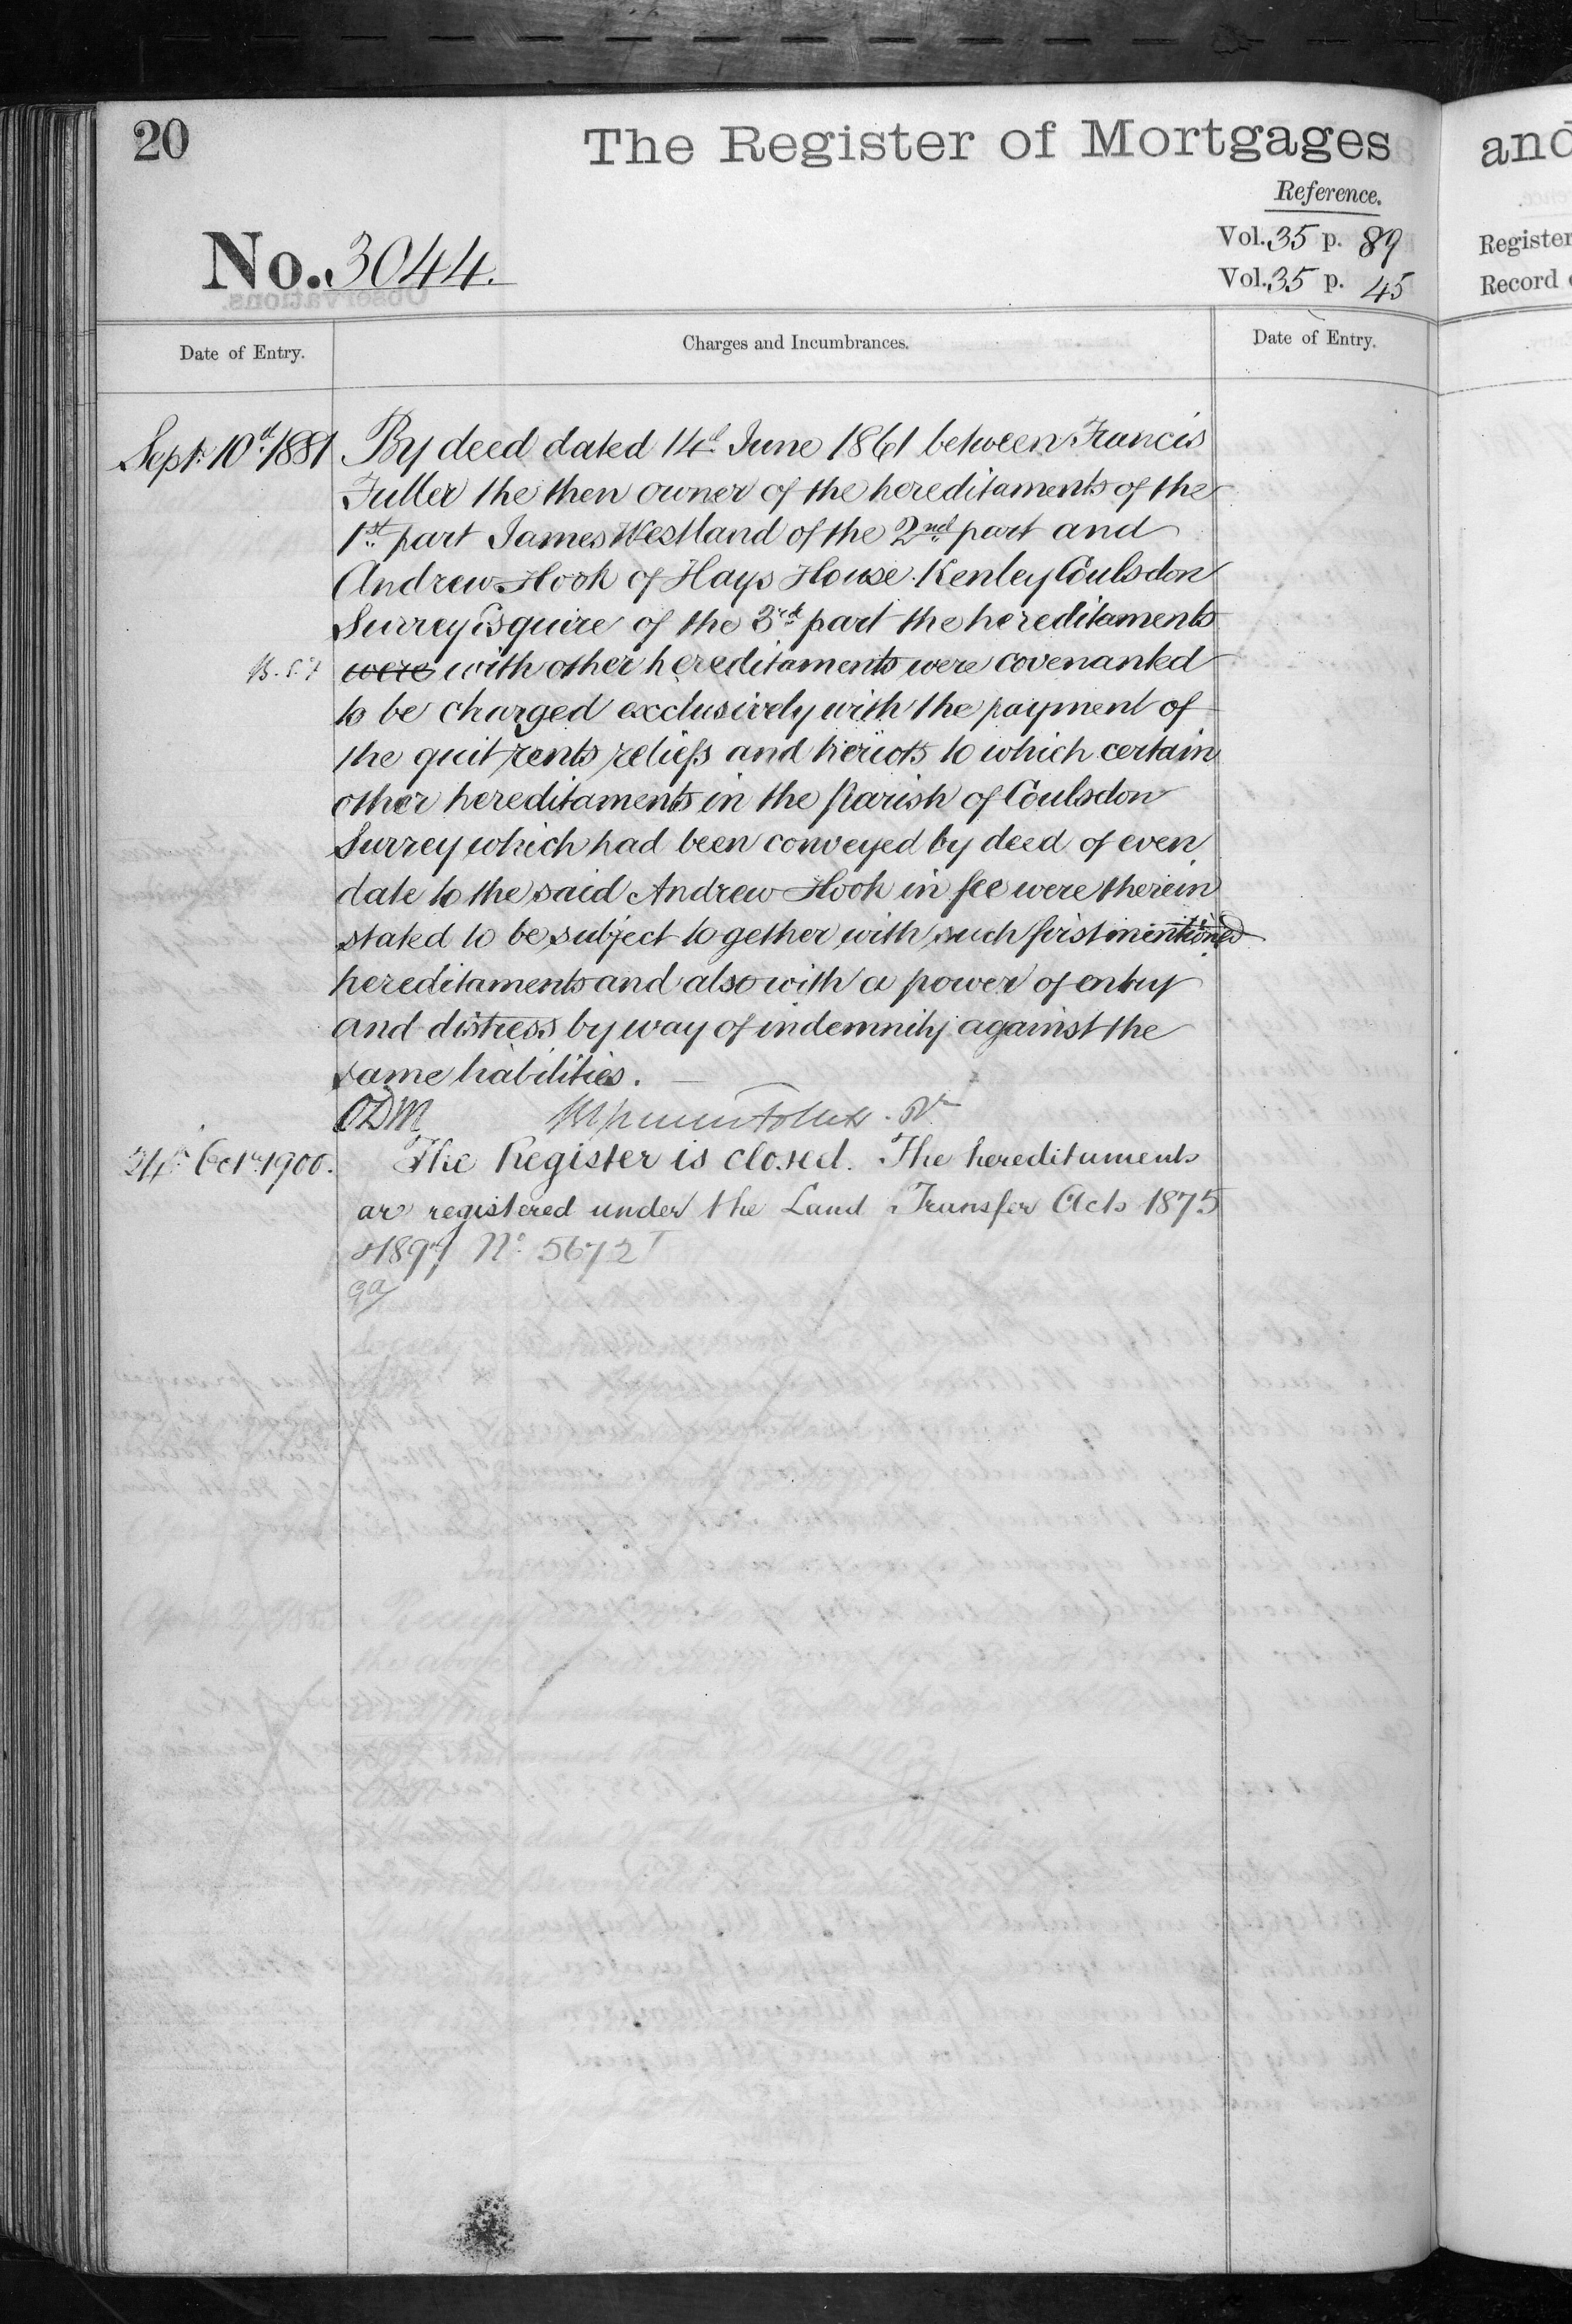 20
The Register of Mortgages
and
Reference.
No. 3044.
Vol. 35 p. 89
Vol. 35 p. 45
Register
Record
Date of Entry.
Charges and Incumbrances.
Date of Entry.
Sept. 10th 1881 By deed dated 14th June 1861 between Francis
Fuller the then owner of the hereditaments of the
1st part James Westland of the 2nd part and
Andrew Hook of Hays House Kenley Coulsdon
Surrey Esquire of the 3rd part the hereditaments
were with other hereditaments were covenanted
to be charged exclusively with the payment of
the quit rents reliefs and heriots to which certain
other hereditaments in the Parish of Coulsdon
Surrey which had been conveyed by deed of even
date to the said Andrew Hook in fee were therein
stated to be subject together with such first mentioned
hereditaments and also with a power of entry
and distress by way of indemnity against the
same liabilities.
ODM
24th Octr. 1900. The Register is closed. The hereditaments
are registered under the Land Transfer Acts 1875
& 1897 No. 5672